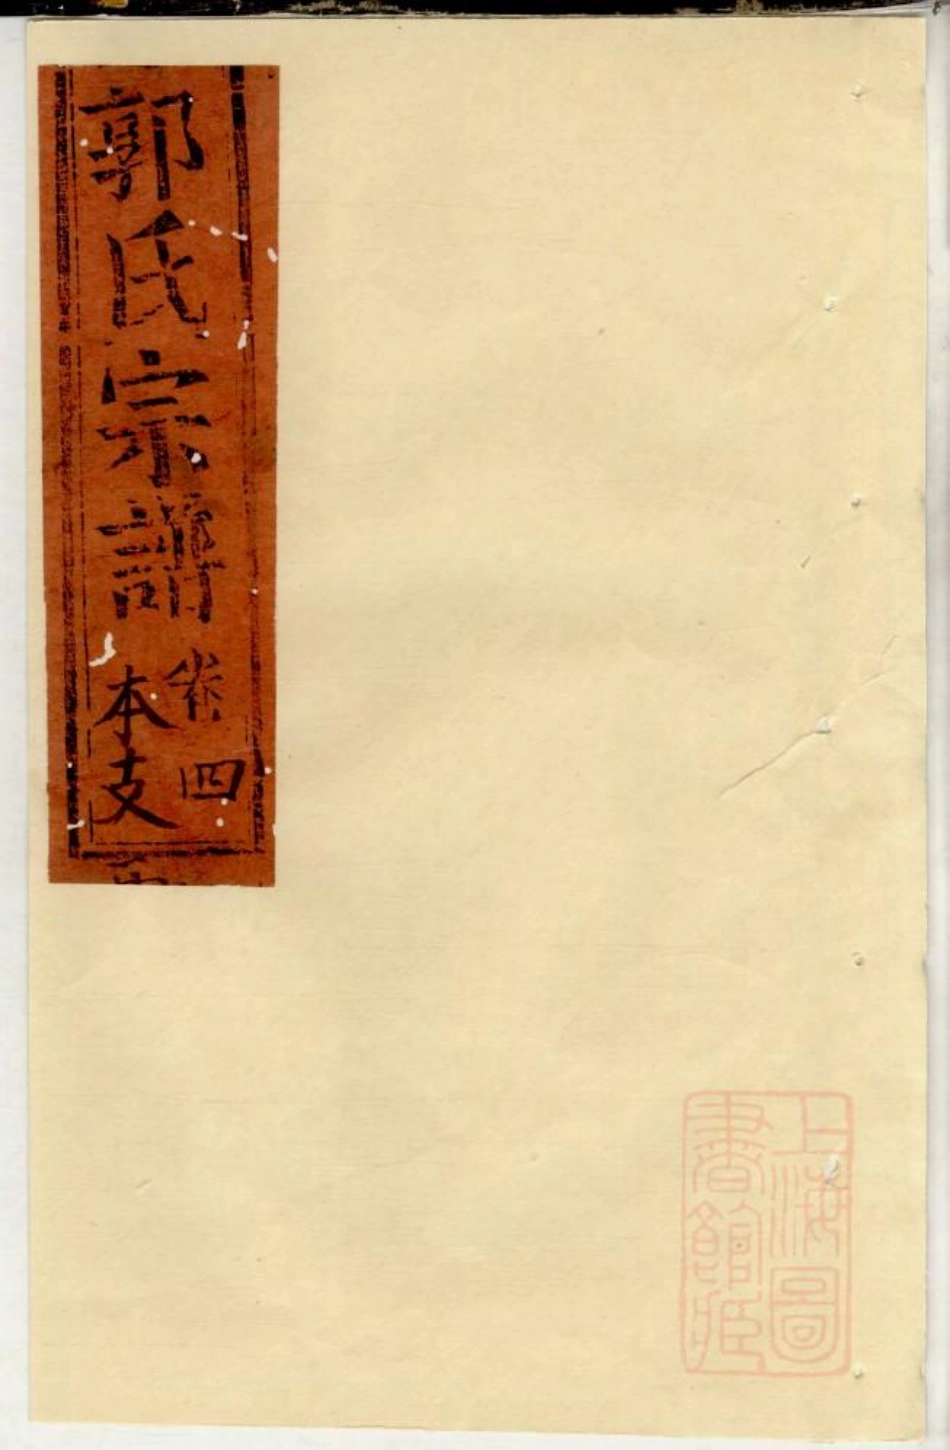 郭氏宗譜
卷四
本支
上海圖
書館藏